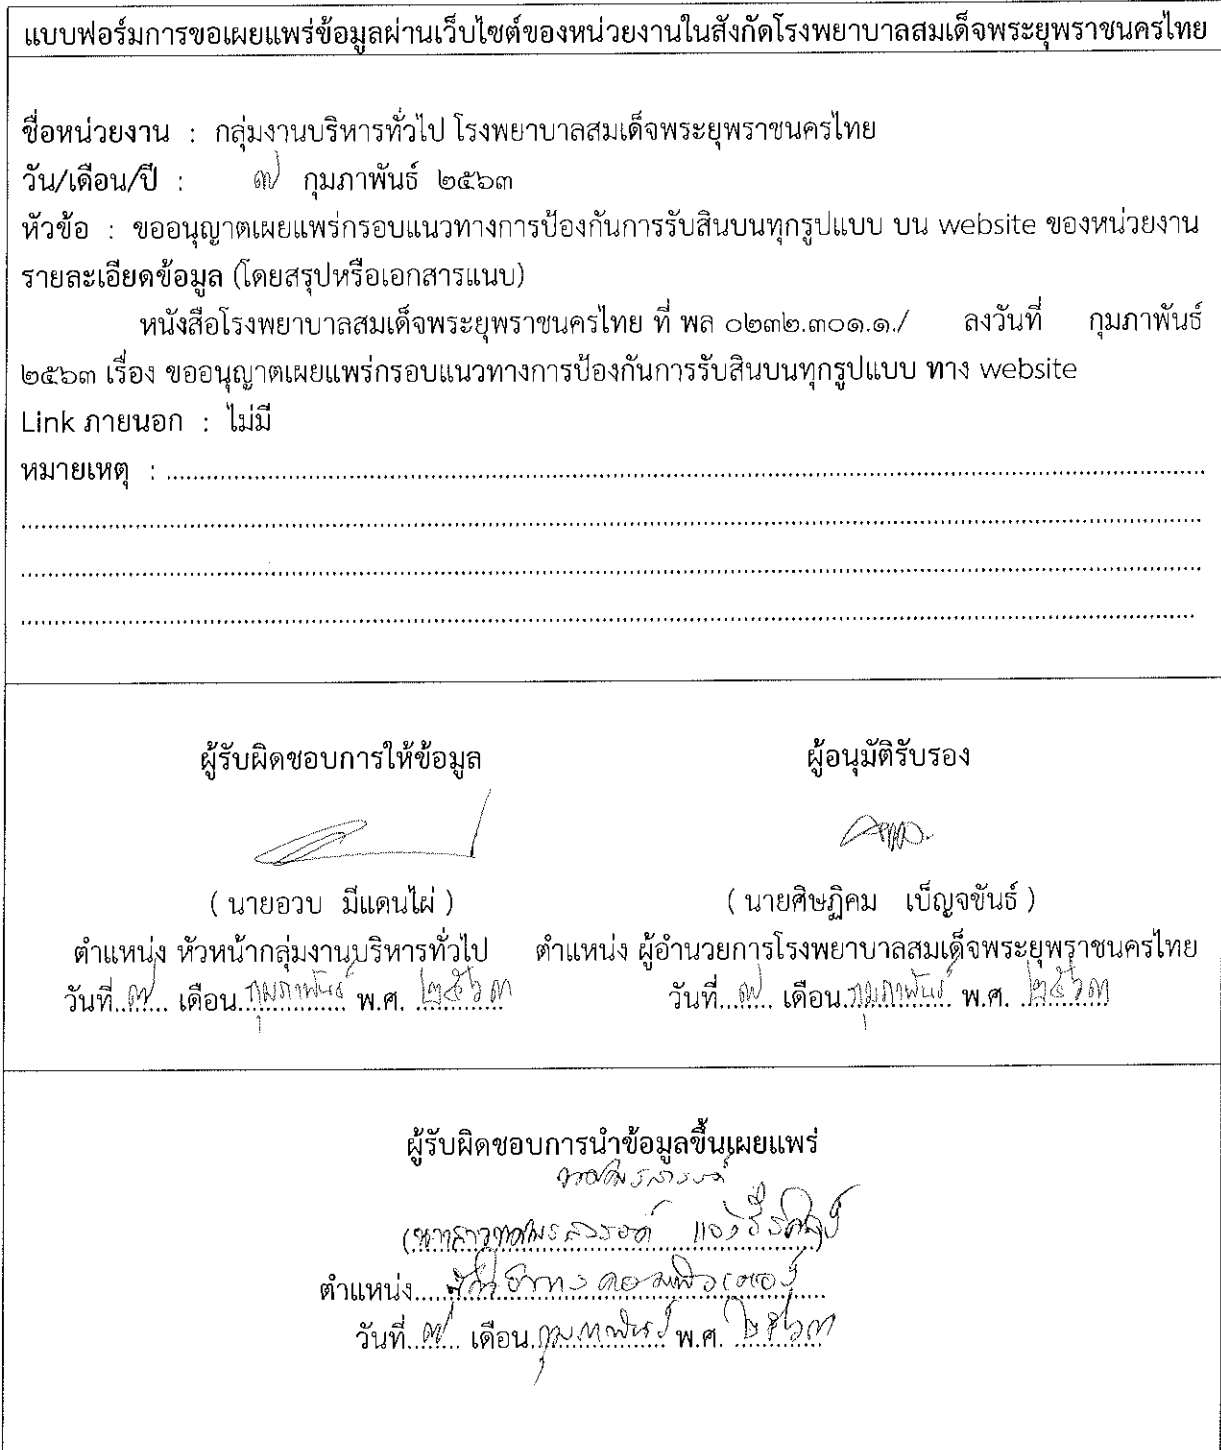 แบบฟอร์มการขอเผยแพร่ข้อมูลผ่านเว็บไซต์ของหน่วยงานในสังกัดโรงพยาบาลสมเด็จพระยุพราชนครไทย
ชื่อหน่วยงาน : กลุ่มงานบริหารทั่วไป โรงพยาบาลสมเด็จพระยุพราชนครไทย
วัน/เดือน/ปี : ๗ กุมภาพันธ์ ๒๕๖๓
หัวข้อ : ขออนุญาตเผยแพร่กรอบแนวทางการป้องกันการรับสินบนทุกรูปแบบ บน website ของหน่วยงาน
รายละเอียดข้อมูล (โดยสรุปหรือเอกสารแนบ)
หนังสือโรงพยาบาลสมเด็จพระยุพราชนครไทย ที่ พล ๐๒๓๒.๓๐๑.๑./ ลงวันที่ กุมภาพันธ์
๒๕๖๓ เรื่อง ขออนุญาตเผยแพร่กรอบแนวทางการป้องกันการรับสินบนทุกรูปแบบ ทาง website
Link ภายนอก : ไม่มี
หมายเหตุ :
ผู้รับผิดชอบการให้ข้อมูล ผู้อนุมัติรับรอง
( นายอวบ มีแดนไผ่ ) ( นายศิษฏิคม เบ็ญจขันธ์ )
ตำแหน่ง หัวหน้ากลุ่มงานบริหารทั่วไป ตำแหน่ง ผู้อำนวยการโรงพยาบาลสมเด็จพระยุพราชนครไทย
วันที่ ๗ เดือน กุมภาพันธ์ พ.ศ. ๒๕๖๓ วันที่ ๗ เดือน กุมภาพันธ์ พ.ศ. ๒๕๖๓
ผู้รับผิดชอบการนำข้อมูลขึ้นเผยแพร่
ตำแหน่ง
วันที่ ๗ เดือน กุมภาพันธ์ พ.ศ. ๒๕๖๓